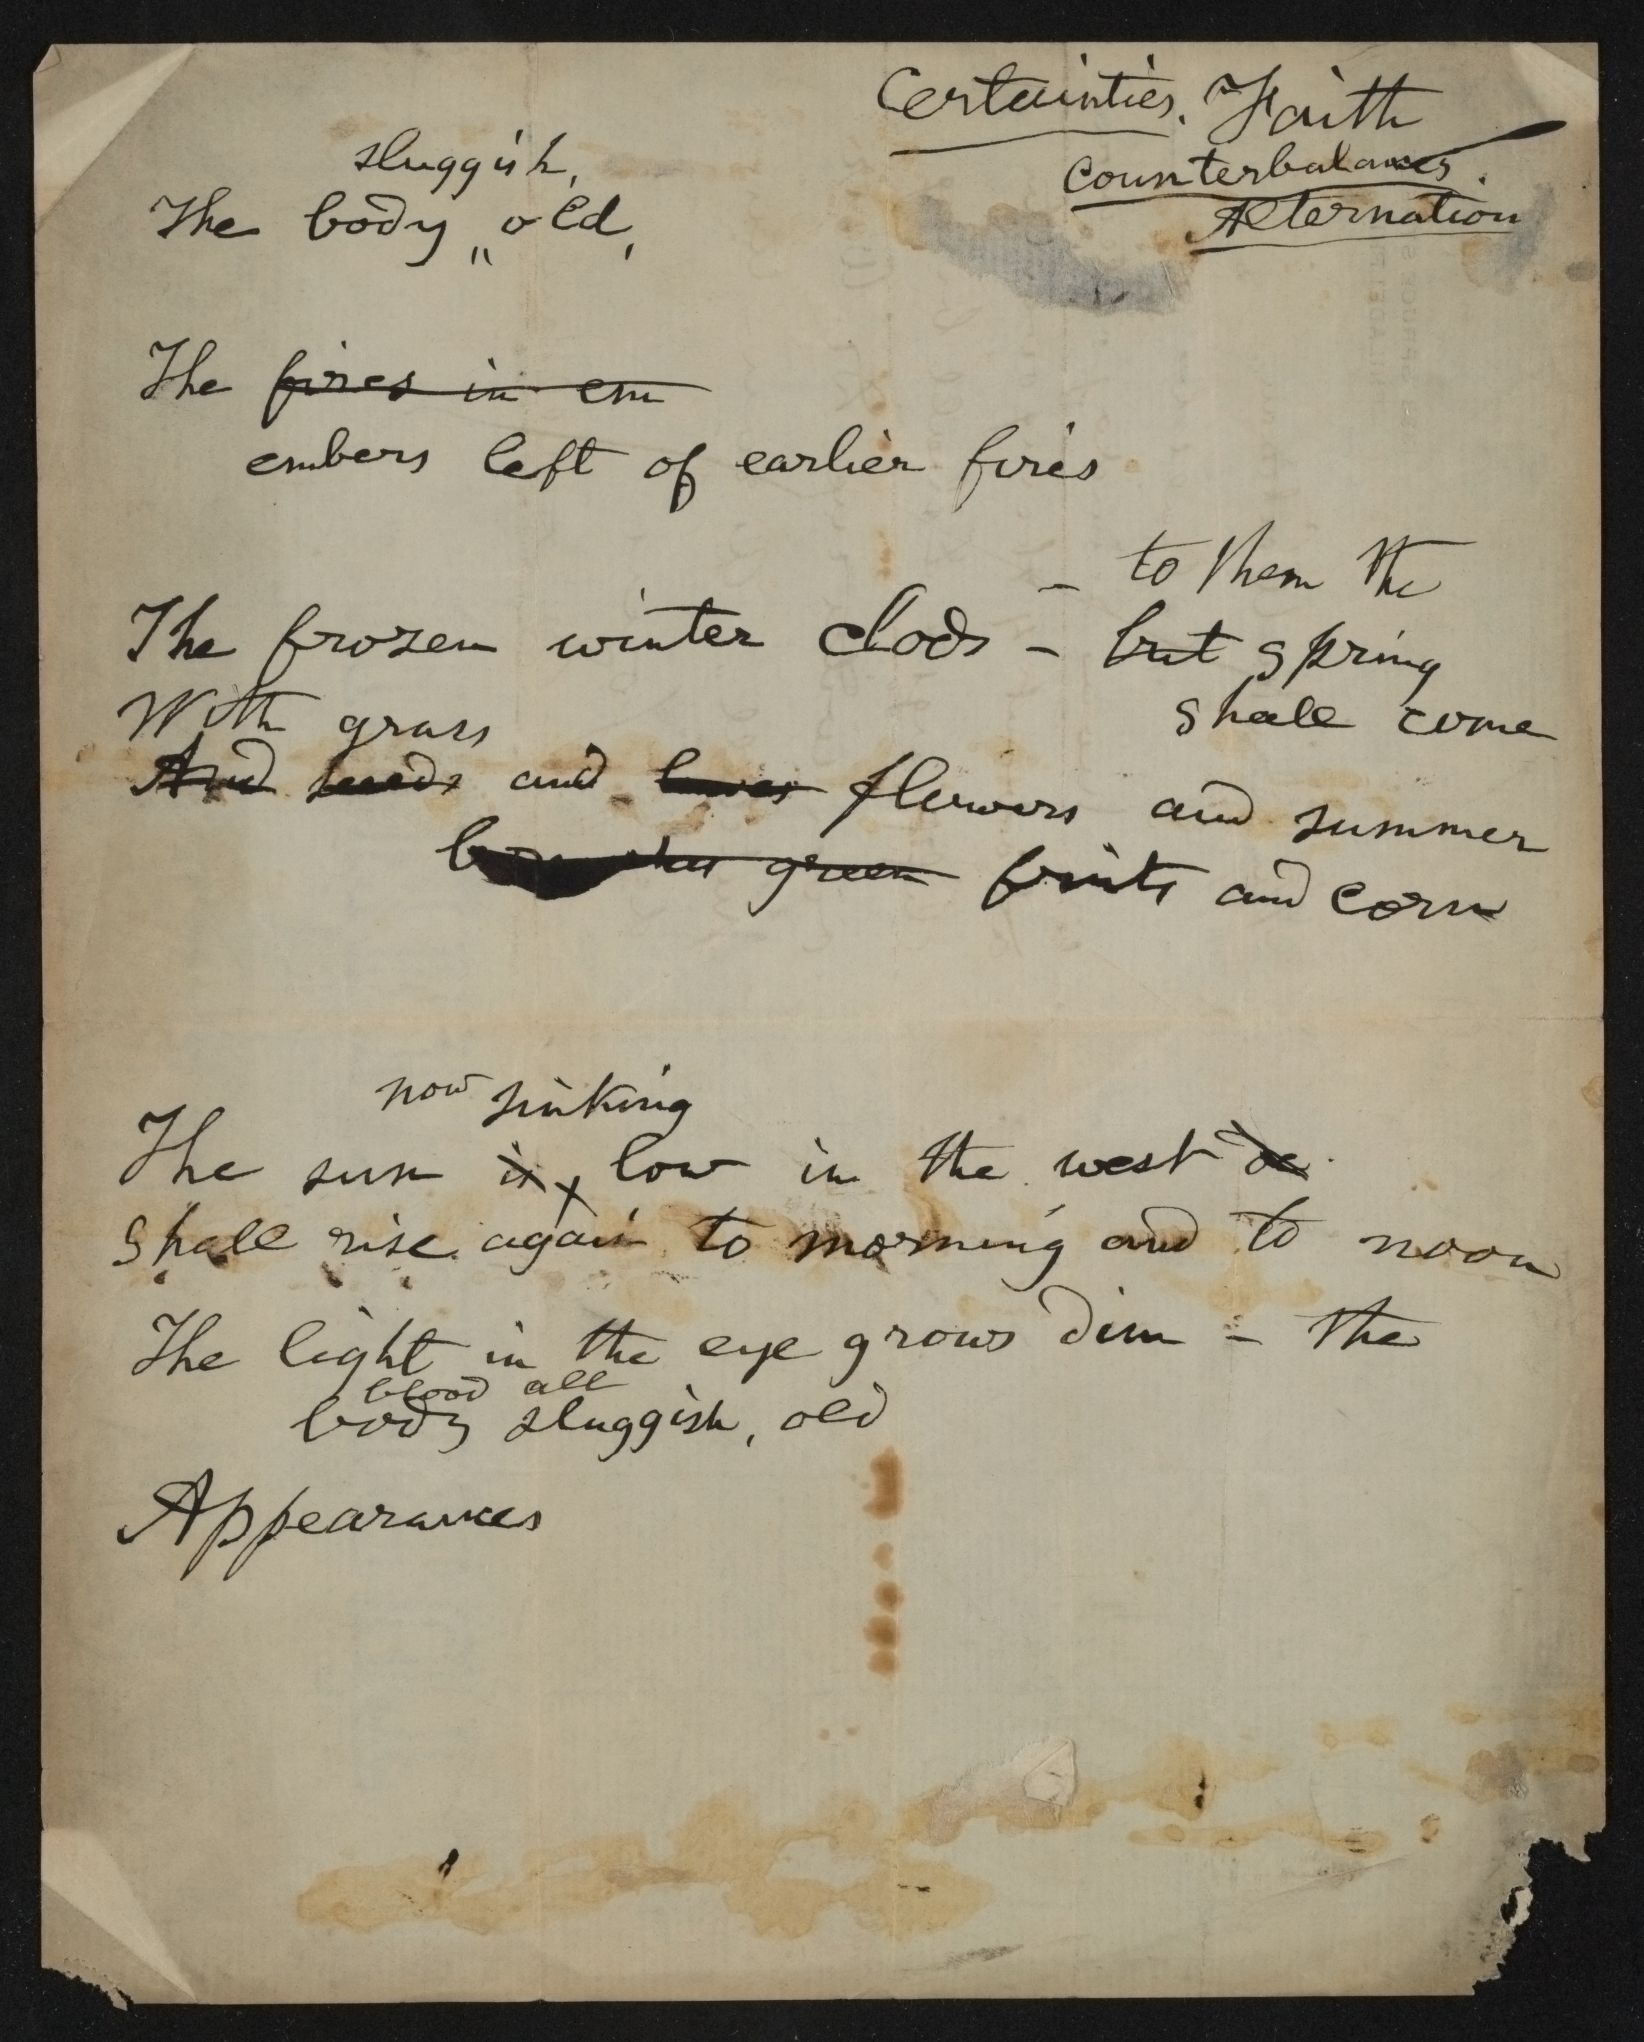 Certainties. Faith
Counterbalances.
Alternation
sluggish,
The body „ old,
The fires in em
embers left of earlier fires
– to them the
The frozen winter clods – but spring
shall come
With grass
And seeds and leaves flowers and summer
green fruits and corn
now sinking
The sun is low in the west
Shall rise again to morning and to noon
The light in the eye grows dim – the
blood all
body sluggish, old
Appearances